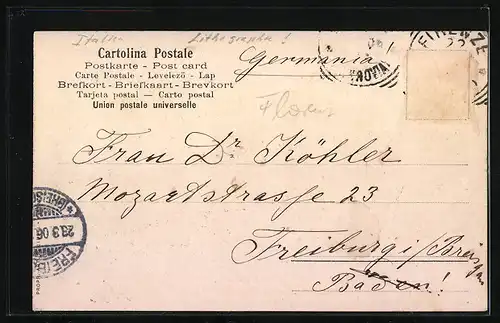 Italien Lithographie!
Cartolina Postale
Postkarte - Post card
Carte Postale - Levelező - Lap
Brefkort - Briefkaart - Brevkort
Tarjeta postal — Carto postal
Union postale universelle
Germania
FIRENZE
Frau Dr Köhler
Mozartstrasse 23
Freiburg i/Breisgau
Baden!
FREIBURG
23.3.06